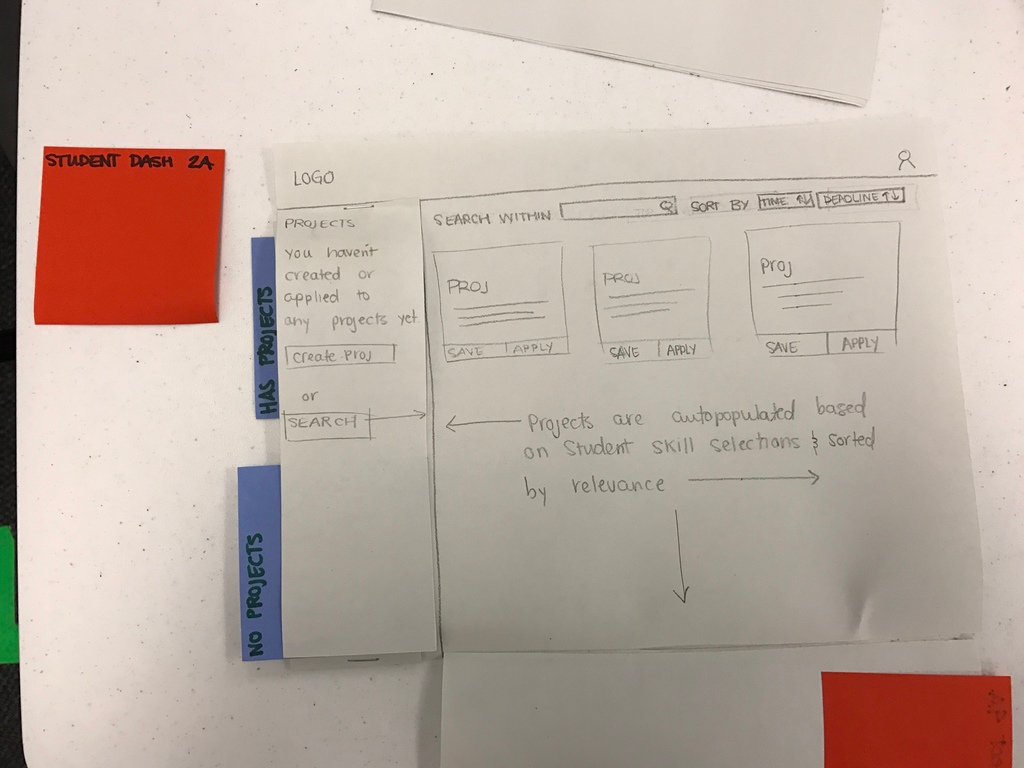 STUDENT DASH 2A
LOGO
PROJECTS
you haven't
created or
applied to
any projects yet
create proj
or
SEARCH
HAS PROJECTS
NO PROJECTS
SEARCH WITHIN
SORT BY TIME ↑↓ DEADLINE ↑↓
PROJ
SAVE APPLY
PROJ
SAVE APPLY
Proj
SAVE APPLY
Projects are autopopulated based
on Student skill selections & sorted
by relevance